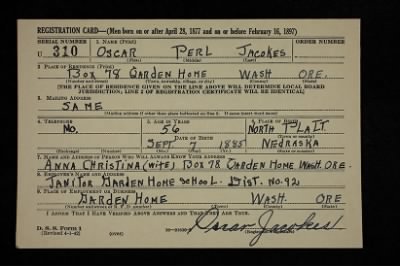 REGISTRATION CARD—(Men born on or after April 28, 1877 and on or before February 16, 1897)
SERIAL NUMBER 1. NAME (Print) ORDER NUMBER
U 310 OSCAR PERL JACOKES
(First) (Middle) (Last)
2. PLACE OF RESIDENCE (Print)
BOX 78 GARDEN HOME WASH ORE.
(Number and street) (Town, township, village, or city) (County) (State)
[THE PLACE OF RESIDENCE GIVEN ON THE LINE ABOVE WILL DETERMINE LOCAL BOARD
JURISDICTION; LINE 2 OF REGISTRATION CERTIFICATE WILL BE IDENTICAL]
3. MAILING ADDRESS
SAME
[Mailing address if other than place indicated on line 2. If same insert word same]
4. TELEPHONE 5. AGE IN YEARS 6. PLACE OF BIRTH
NO. 56 NORTH PLATT.
DATE OF BIRTH (Town or county)
SEPT 7 1885 NEBRASKA
(Exchange) (Number) (Mo.) (Day) (Yr.) (State or country)
7. NAME AND ADDRESS OF PERSON WHO WILL ALWAYS KNOW YOUR ADDRESS
ANNA CHRISTINA (WIFE) BOX 78 GARDEN HOME WASH. ORE.
8. EMPLOYER'S NAME AND ADDRESS
JANITOR GARDEN HOME SCHOOL. DIST. NO. 92
9. PLACE OF EMPLOYMENT OR BUSINESS
GARDEN HOME WASH. ORE
(Number and street or R. F. D. number) (Town) (County) (State)
I AFFIRM THAT I HAVE VERIFIED ABOVE ANSWERS AND THAT THEY ARE TRUE.
D. S. S. Form 1
(Revised 4-1-42) (over) Oscar Jacokes